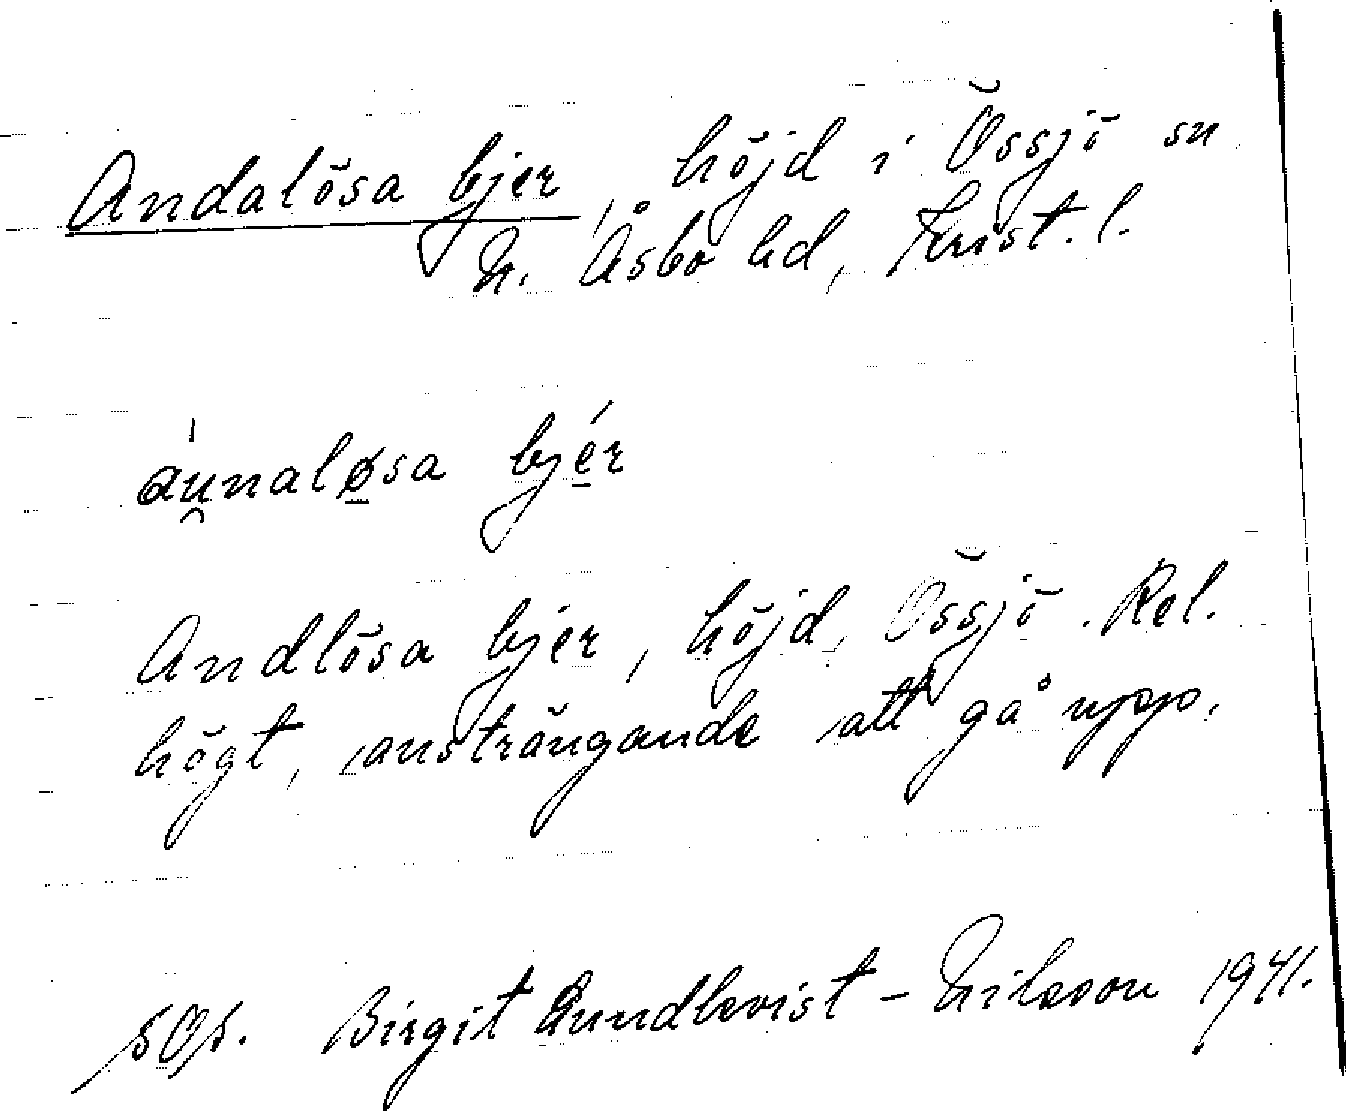 Andalösa bjer, höjd i Össjö sn
N. Åsbo hd, Krist. l.
áu̯nalø̱sa bjé̱r
Andlösa bjer, höjd, Össjö. Rel.
högt, ansträngande att gå upp.
sOs. Birgit Lundkvist - Nilsson 1941.